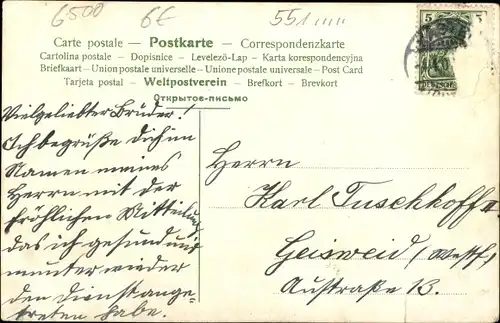 6500 6€ 551
Carte postale – Postkarte – Correspondenzkarte
Cartolina postale – Dopisnice – Levelező-Lap – Karta korespondencyjna
Briefkaart – Union postale universelle – Unione postale universale – Post Card
Tarjeta postal – Weltpostverein – Brefkort – Brevkort
Открытое-письмо
5
Vielgeliebter Bruder!
Ich begrüße dich im
Namen meines
Herrn mit der
fröhlichen Mitteilung
das ich gesund und
munter wieder
den Dienst ange-
treten habe.
Herrn
Karl Tuschhoff II
Geisweid (Westf)
Austraße 13.